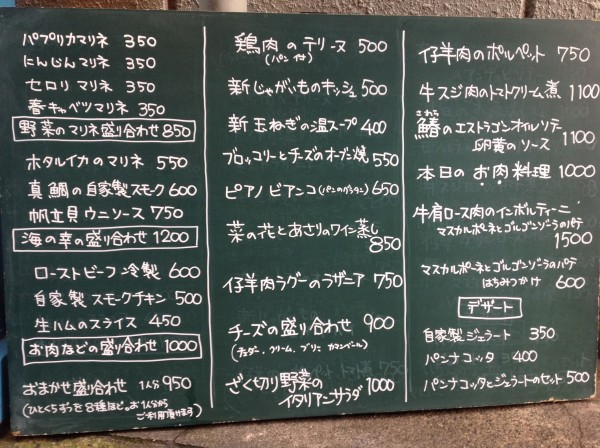 パプリカマリネ 350
にんじんマリネ 350
セロリマリネ 350
春キャベツマリネ 350
野菜のマリネ盛り合わせ 850
ホタルイカのマリネ 550
真鯛の自家製スモーク 600
帆立貝ウニソース 750
海の幸の盛り合わせ 1200
ローストビーフ冷製 600
自家製スモークチキン 500
生ハムのスライス 450
お肉などの盛り合わせ 1000
おまかせ盛り合わせ 1人分 950
(ひとくちずつを8種ほど。お1人分から
ご利用頂けます)
鶏肉のテリーヌ 500
(パン付)
新じゃがいものキッシュ 500
新玉ねぎの温スープ 400
ブロッコリーとチーズのオーブン焼 550
ピアノビアンコ(パンのグラタン) 650
菜の花とあさりのワイン蒸し
850
仔羊肉ラグーのラザニア 750
チーズの盛り合わせ 900
(チェダー、クリーム、ブリー、カマンベール)
ざく切り野菜の
イタリアンサラダ 1000
仔羊肉のポルペット 750
牛スジ肉のトマトクリーム煮
1100
さわら
鰆のエストラゴンオイルソテー
卵黄のソース 1100
本日のお肉料理 1000
牛肩ロース肉のインボルティーニ
マスカルポーネとゴルゴンゾーラのパテ
1500
マスカルポーネとゴルゴンゾーラのパテ
はちみつかけ 600
デザート
自家製ジェラート 350
パンナコッタ 400
パンナコッタとジェラートのセット 500